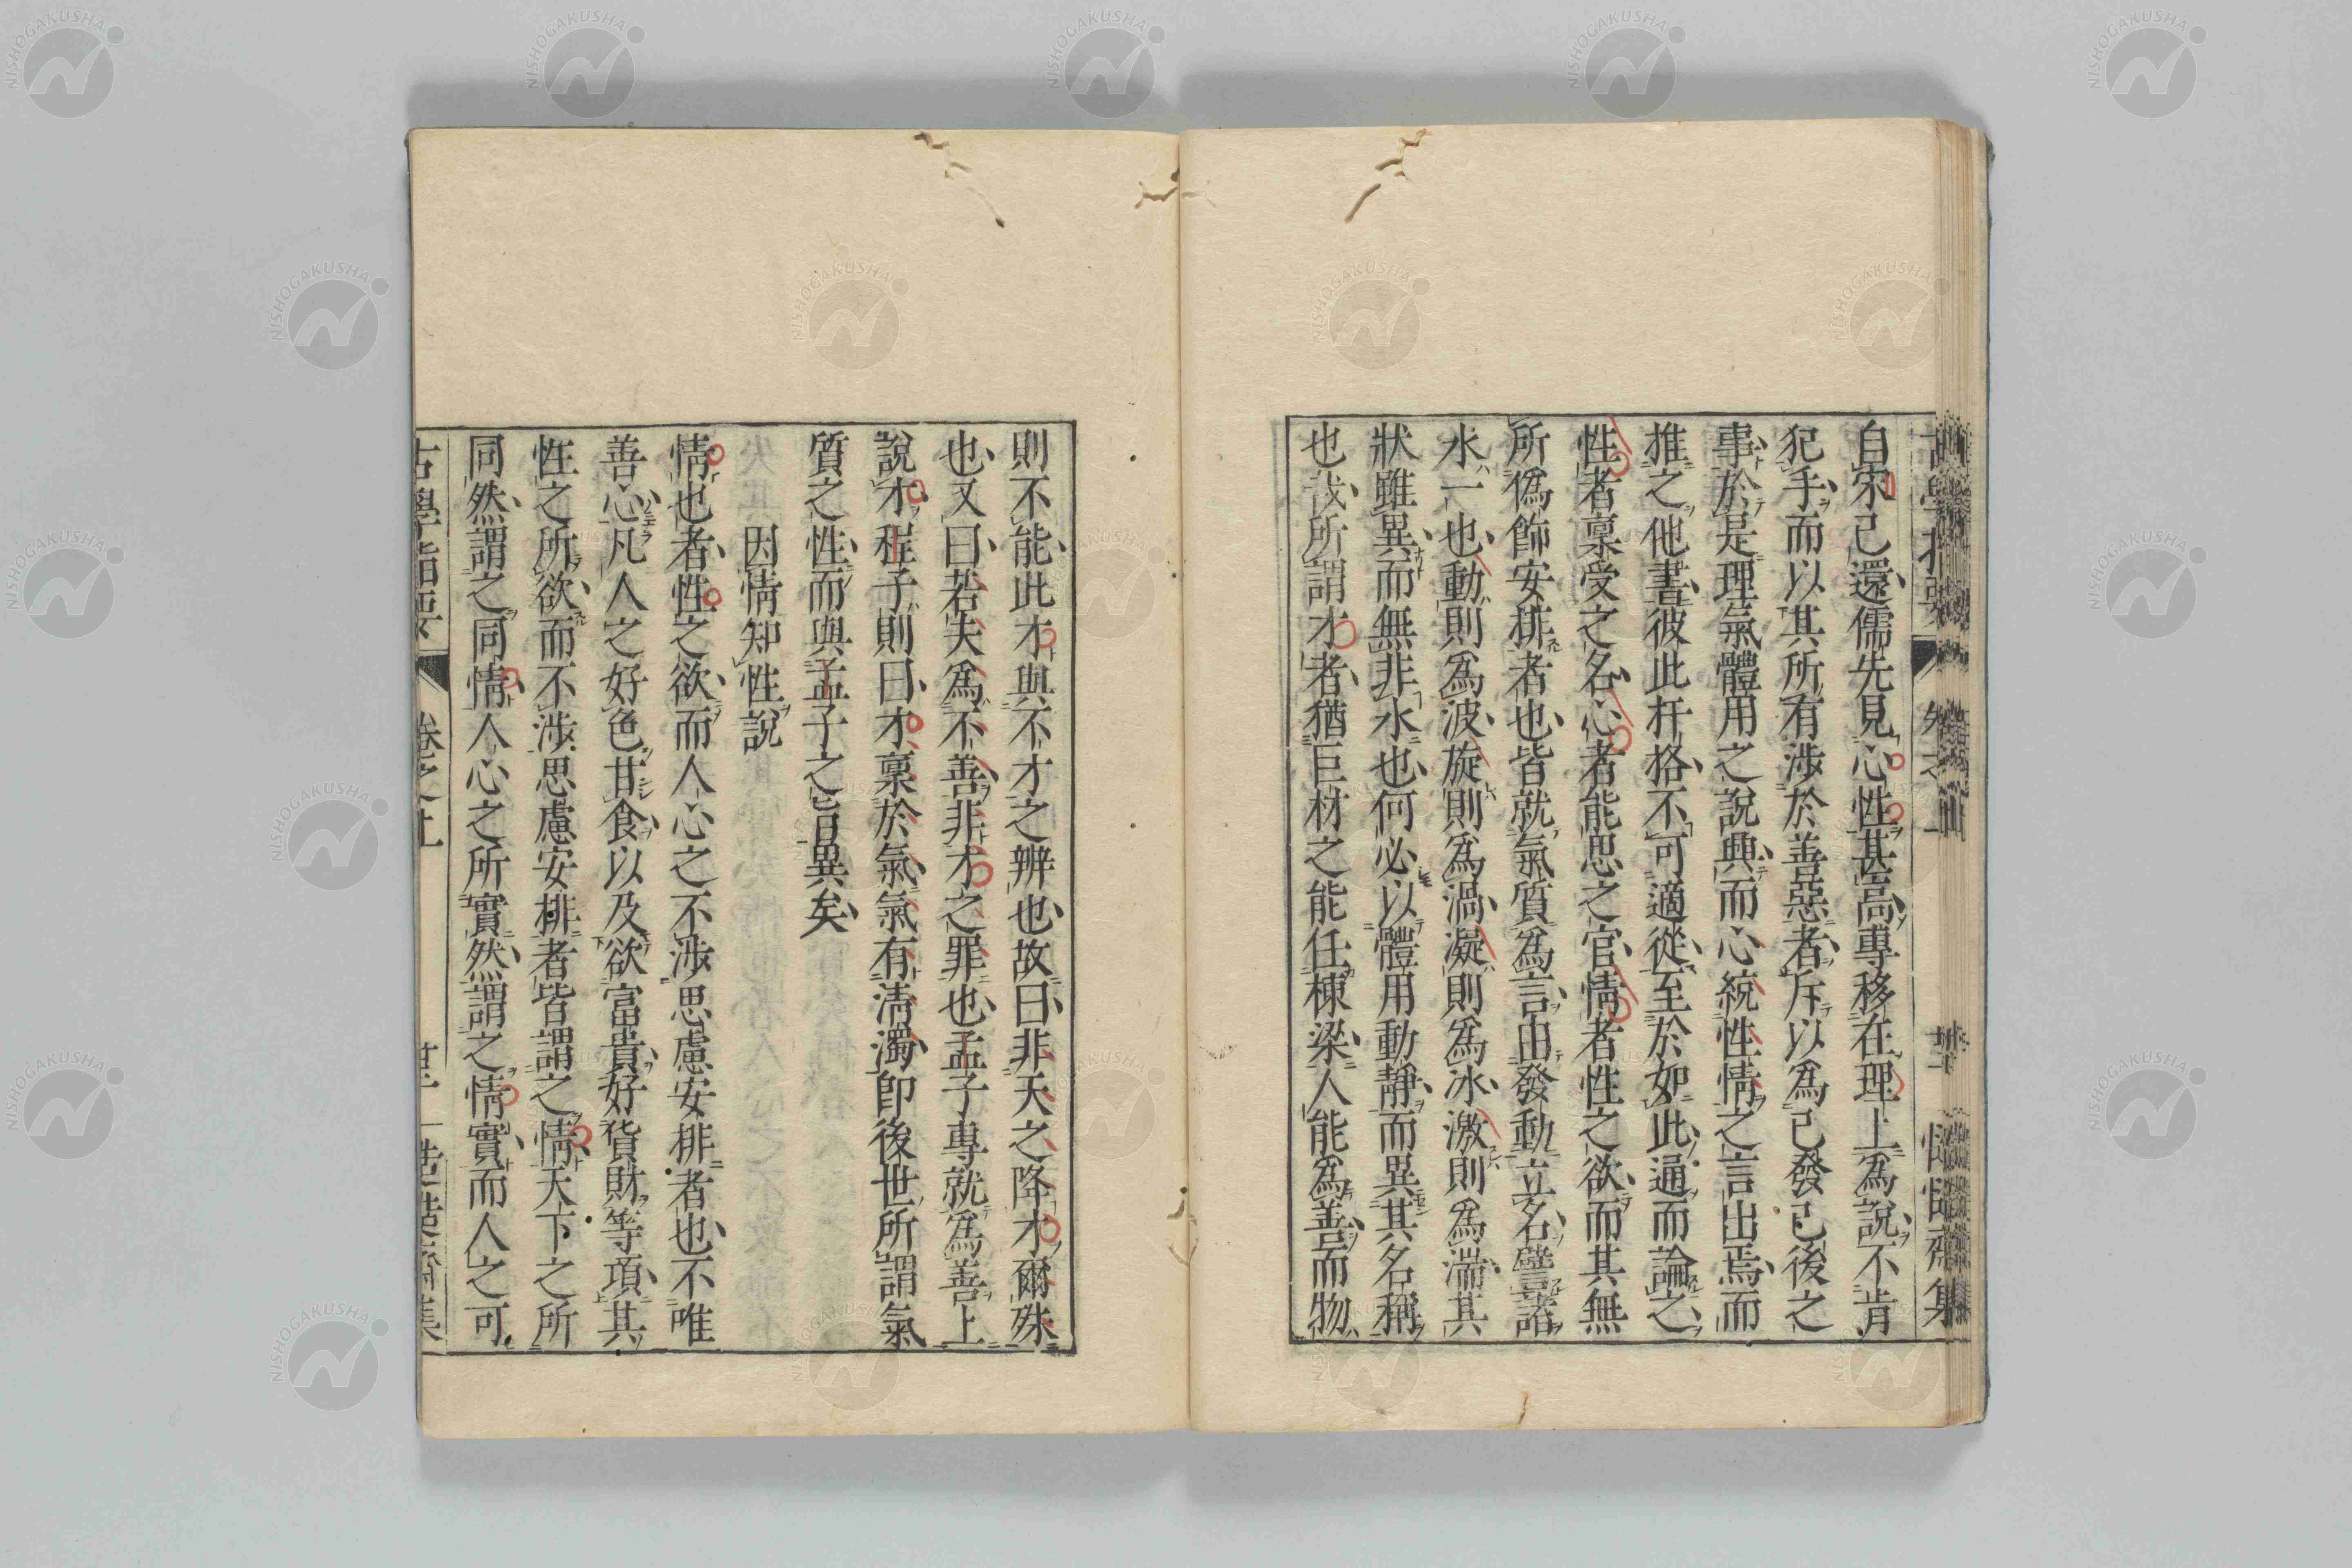 自宋已還儒先見心性甚高專移在理上為說不肯
犯手而以其所有涉於善惡者斥以為已發已後之
事於是理氣體用之說興而心統性情之言出焉而
推之他書彼此扞格不可適從至於如此通而論之
性者稟受之名心者能思之官情者性之欲而其無
所偽飾安排者也皆就氣質為言由發動立名譬諸
水一也動則為波旋則為渦凝則為冰激則為湍其
狀雖異而無非水也何必以體用動靜而異其名稱
也哉所謂才者猶巨材之能任棟梁人能為善而物
則不能此才與不才之辨也故曰非天之降才爾殊
也又曰若夫為不善非才之罪也孟子專就為善上
說才程子則曰才稟於氣氣有清濁即後世所謂氣
質之性而與孟子之旨異矣
因情知性說
情也者性之欲而人心之不涉思慮安排者也不唯
善心凡人之好色甘食以及欲富貴好貨財等項其
性之所欲而不涉思慮安排者皆謂之情天下之所
同然謂之同情人心之所實然謂之情實而人之可
古學指要 卷之上
NISHOGAKUSHA